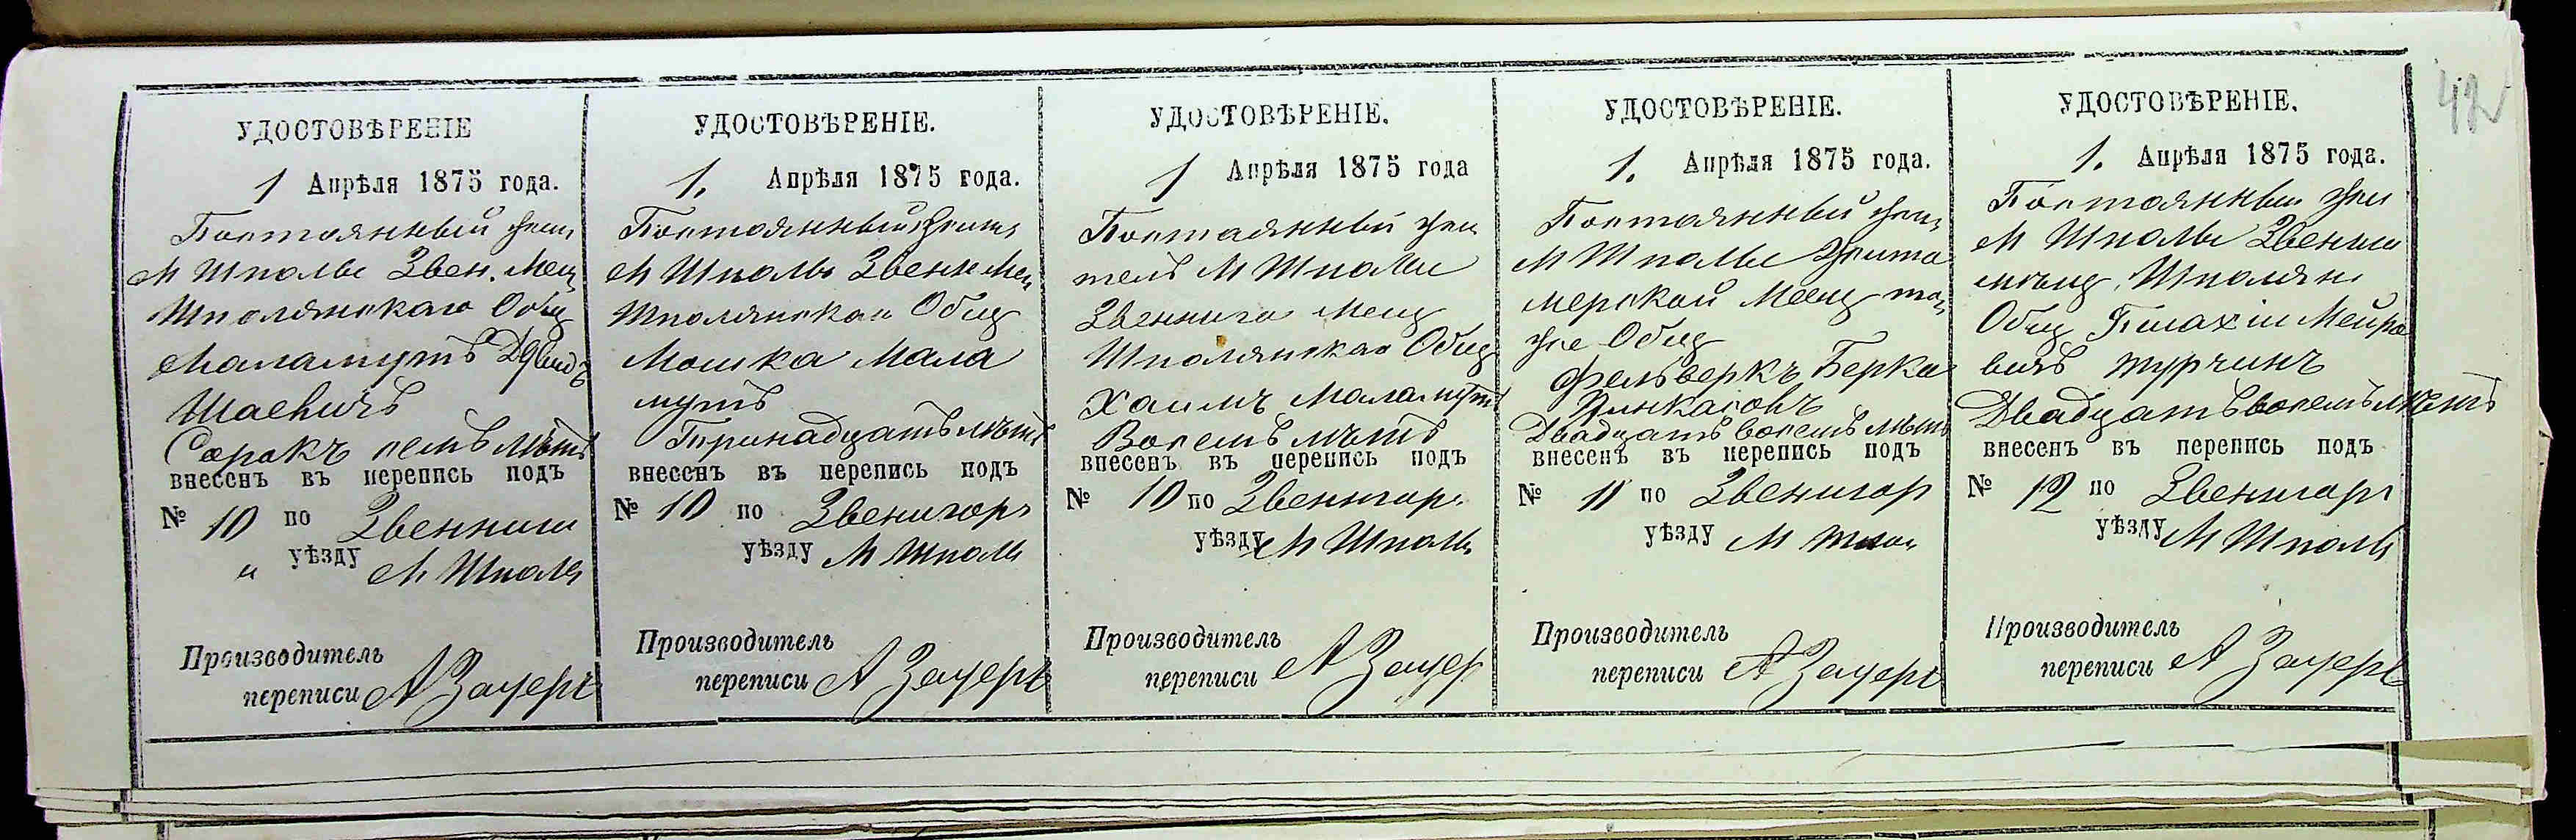 42
УДОСТОВѢРЕНІЕ
1 Апрѣля 1875 года.
Постоянный жит
М Шполы Звен. Мещ
Шполянскаго Общ
Маламутъ
Шаевичъ
Сорокъ семь лѣтъ
внесенъ въ перепись подъ
№ 10 по Звенниги
уѣзду М. Шпола
Производитель
переписи А Зауеръ
УДОСТОВѢРЕНІЕ.
1. Апрѣля 1875 года.
Постоянный жит
М Шполы Звени Мещ
Шполянскаго Общ
Мошка Мала
мутъ
Тринадцать лѣтъ
внесенъ въ перепись подъ
№ 10 по Звенигор
уѣзду М Шполы
Производитель
переписи А Зауеръ
УДОСТОВѢРЕНІЕ.
1 Апрѣля 1875 года
Постоянный жи
тель М Шполы
Звеннига Мещ
Шполянскаго Общ
Хаимъ Маламутъ
Восемь лѣтъ
внесенъ въ перепись подъ
№ 10 по Звеннгор.
уѣзду М Шполы
Производитель
переписи А Зауеръ
УДОСТОВѢРЕНІЕ.
1. Апрѣля 1875 года.
Постоянный жи
М Шполы Жито
мерской Мещ то
же Общ
Фельверкъ Берка
Пинкасовъ
Двадцать восемь лѣтъ
внесенъ въ перепись подъ
№ 11 по Звенигор
уѣзду М
Производитель
переписи А Зауеръ
УДОСТОВѢРЕНІЕ.
1. Апрѣля 1875 года.
Постоянный жи
М Шполы Звениги
мѣщ. Шполян
Общ Мейро
вичъ Турчинъ
Двадцать восемь лѣтъ
внесенъ въ перепись подъ
№ 12 по Звенигор
уѣзду М Шполы
Производитель
переписи А Зауеръ